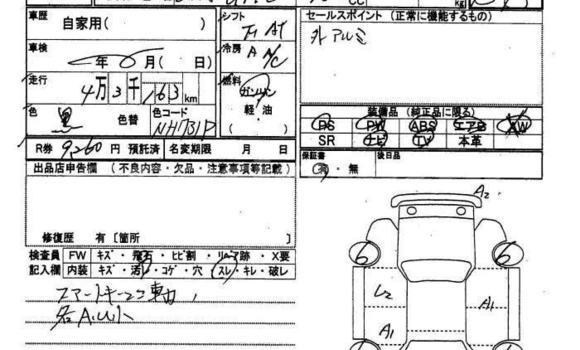 車歴 自家用( )
シフト AT
セールスポイント (正常に機能するもの)
外 アルミ
車検 年6月( 日)
冷房 A A/C
走行 4万3千163km
燃料 ガソリン 軽油
色 黒 色替 色コード NH731P
装備品 (純正品に限る)
PS PW ABS エアB AW
SR ナビ TV 本革
R券 9,260円 預託済 名変期限 月 日
保証書 有・無 後日品
出品店申告欄 (不良内容・欠品・注意事項等記載)
A2
修復歴 有〔箇所 〕
検査員 FW キズ・飛石・ヒビ割・リペア跡・X要
記入欄 内装 キズ・汚レ・コゲ・穴 スレ・キレ・破レ
スマートキー
6 6
A1
A1